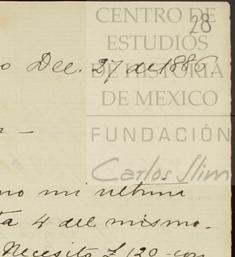 CENTRO DE
28
ESTUDIOS
o Dec. 27 de 1886
DE HISTORIA
DE MEXICO
FUNDACIÓN
Carlos Slim
mo mi ultima
ta 4 del mismo.
Necesito £ 120 con